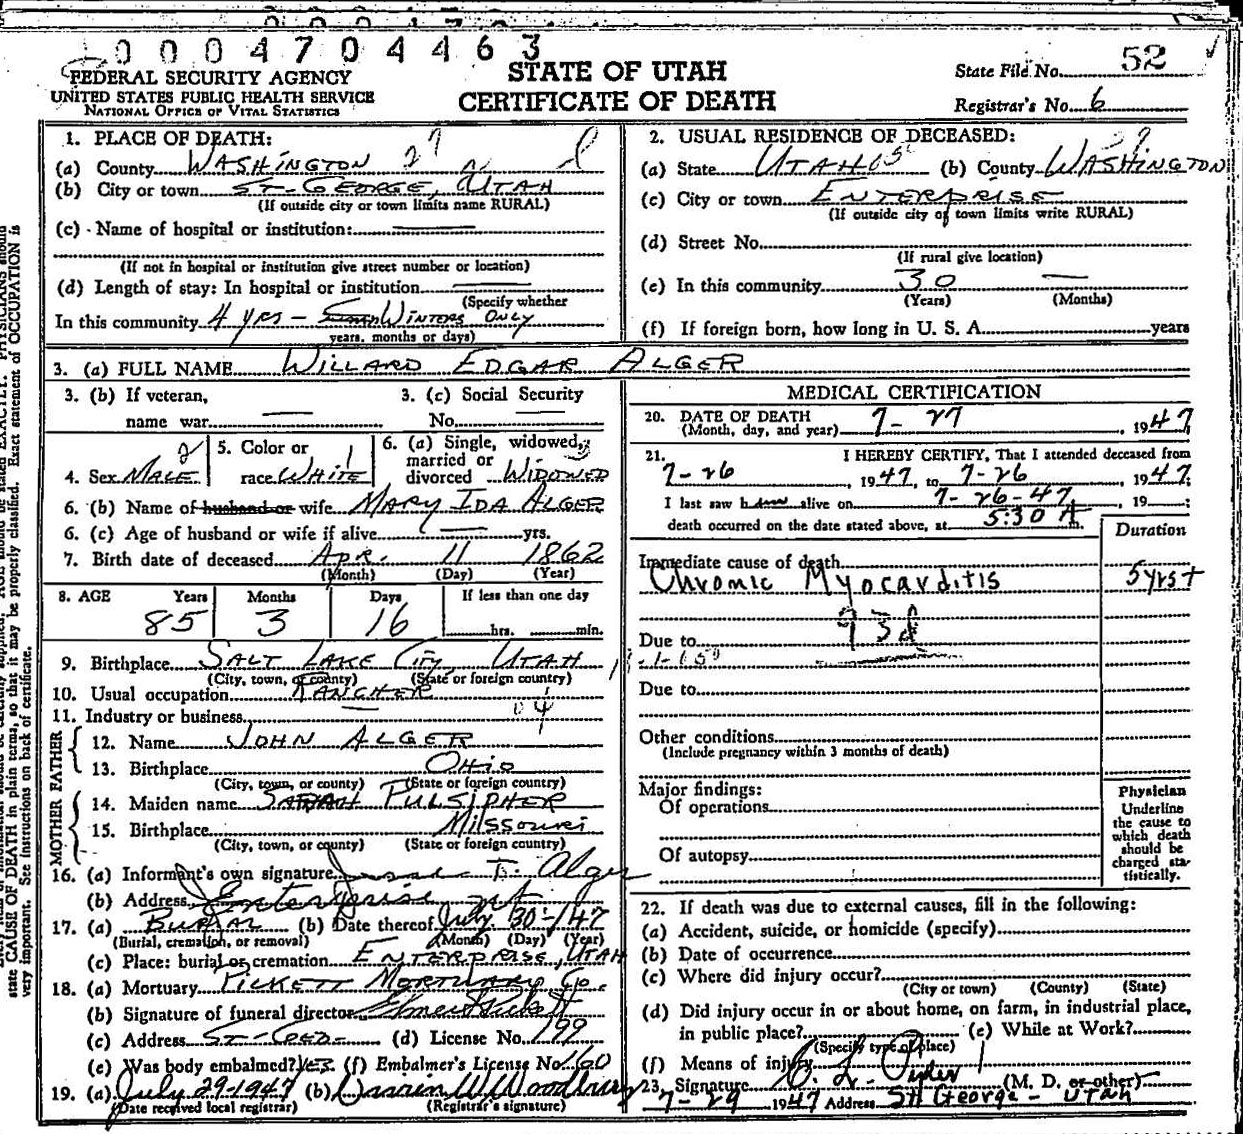 0004704463
FEDERAL SECURITY AGENCY
UNITED STATES PUBLIC HEALTH SERVICE
NATIONAL OFFICE OF VITAL STATISTICS
STATE OF UTAH
CERTIFICATE OF DEATH
State File No. 52
Registrar's No. 6
1. PLACE OF DEATH:
(a) County WASHINGTON 27
(b) City or town ST-GEORGE, UTAH
(If outside city or town limits name RURAL)
(c) Name of hospital or institution:
(If not in hospital or institution give street number or location)
(d) Length of stay: In hospital or institution
(Specify whether
In this community 4 yrs - WINTERS ONLY
years, months or days)
2. USUAL RESIDENCE OF DECEASED:
(a) State UTAH (b) County WASHINGTON
(c) City or town ENTERPRISE
(If outside city of town limits write RURAL)
(d) Street No.
(If rural give location)
(e) In this community 30 —
(Years) (Months)
(f) If foreign born, how long in U. S. A. years
3. (a) FULL NAME WILLARD EDGAR ALGER
3. (b) If veteran,
name war —
3. (c) Social Security
No. —
4. Sex MALE
5. Color or
race WHITE
6. (a) Single, widowed,
married or
divorced WIDOWED
6. (b) Name of husband or wife MARY IDA ALGER
6. (c) Age of husband or wife if alive — yrs.
7. Birth date of deceased APR. 11 1862
(Month) (Day) (Year)
8. AGE Years Months Days If less than one day
85 3 16 hrs. min.
9. Birthplace SALT LAKE CITY UTAH
(City, town, or county) (State or foreign country)
10. Usual occupation RANCHER
11. Industry or business —
FATHER
12. Name JOHN ALGER
13. Birthplace OHIO
(City, town, or county) (State or foreign country)
MOTHER
14. Maiden name SARAH PULSIPHER
15. Birthplace MISSOURI
(City, town, or county) (State or foreign country)
16. (a) Informant's own signature Alger
(b) Address Enterprise Ut
17. (a) BURIAL (b) Date thereof July. 30-1947
(Burial, cremation, or removal) (Month) (Day) (Year)
(c) Place: burial or cremation ENTERPRISE, UTAH
18. (a) Mortuary PICKETT MORTUARY Co.
(b) Signature of funeral director Elmer Pickett
(c) Address ST-GEO- (d) License No. 199
(e) Was body embalmed? YES (f) Embalmer's License No. 160
19. (a) July 29-1947 (b) W Woodbury
(Date received local registrar) (Registrar's signature)
MEDICAL CERTIFICATION
20. DATE OF DEATH
(Month, day, and year) 7-27, 1947
21. I HEREBY CERTIFY, That I attended deceased from
7-26, 1947, to 7-26, 1947:
I last saw him alive on 7-26-47, 19 :
death occurred on the date stated above, at 5:30 A m.
Duration
Immediate cause of death
Chronic Myocarditis 5yrs+
93d
Due to
Due to
Other conditions
(Include pregnancy within 3 months of death)
Major findings:
Of operations
Of autopsy
Physician
Underline
the cause to
which death
should be
charged sta-
tistically.
22. If death was due to external causes, fill in the following:
(a) Accident, suicide, or homicide (specify)
(b) Date of occurrence
(c) Where did injury occur?
(City or town) (County) (State)
(d) Did injury occur in or about home, on farm, in industrial place,
in public place? (e) While at Work?
(Specify type of place)
(f) Means of injury
23. Signature (M. D. or other)
7-29 1947 Address St George - Utah
state CAUSE OF DEATH in plain terms, so that it may be properly classified. Exact statement of OCCUPATION is
very important. See instructions on back of certificate.